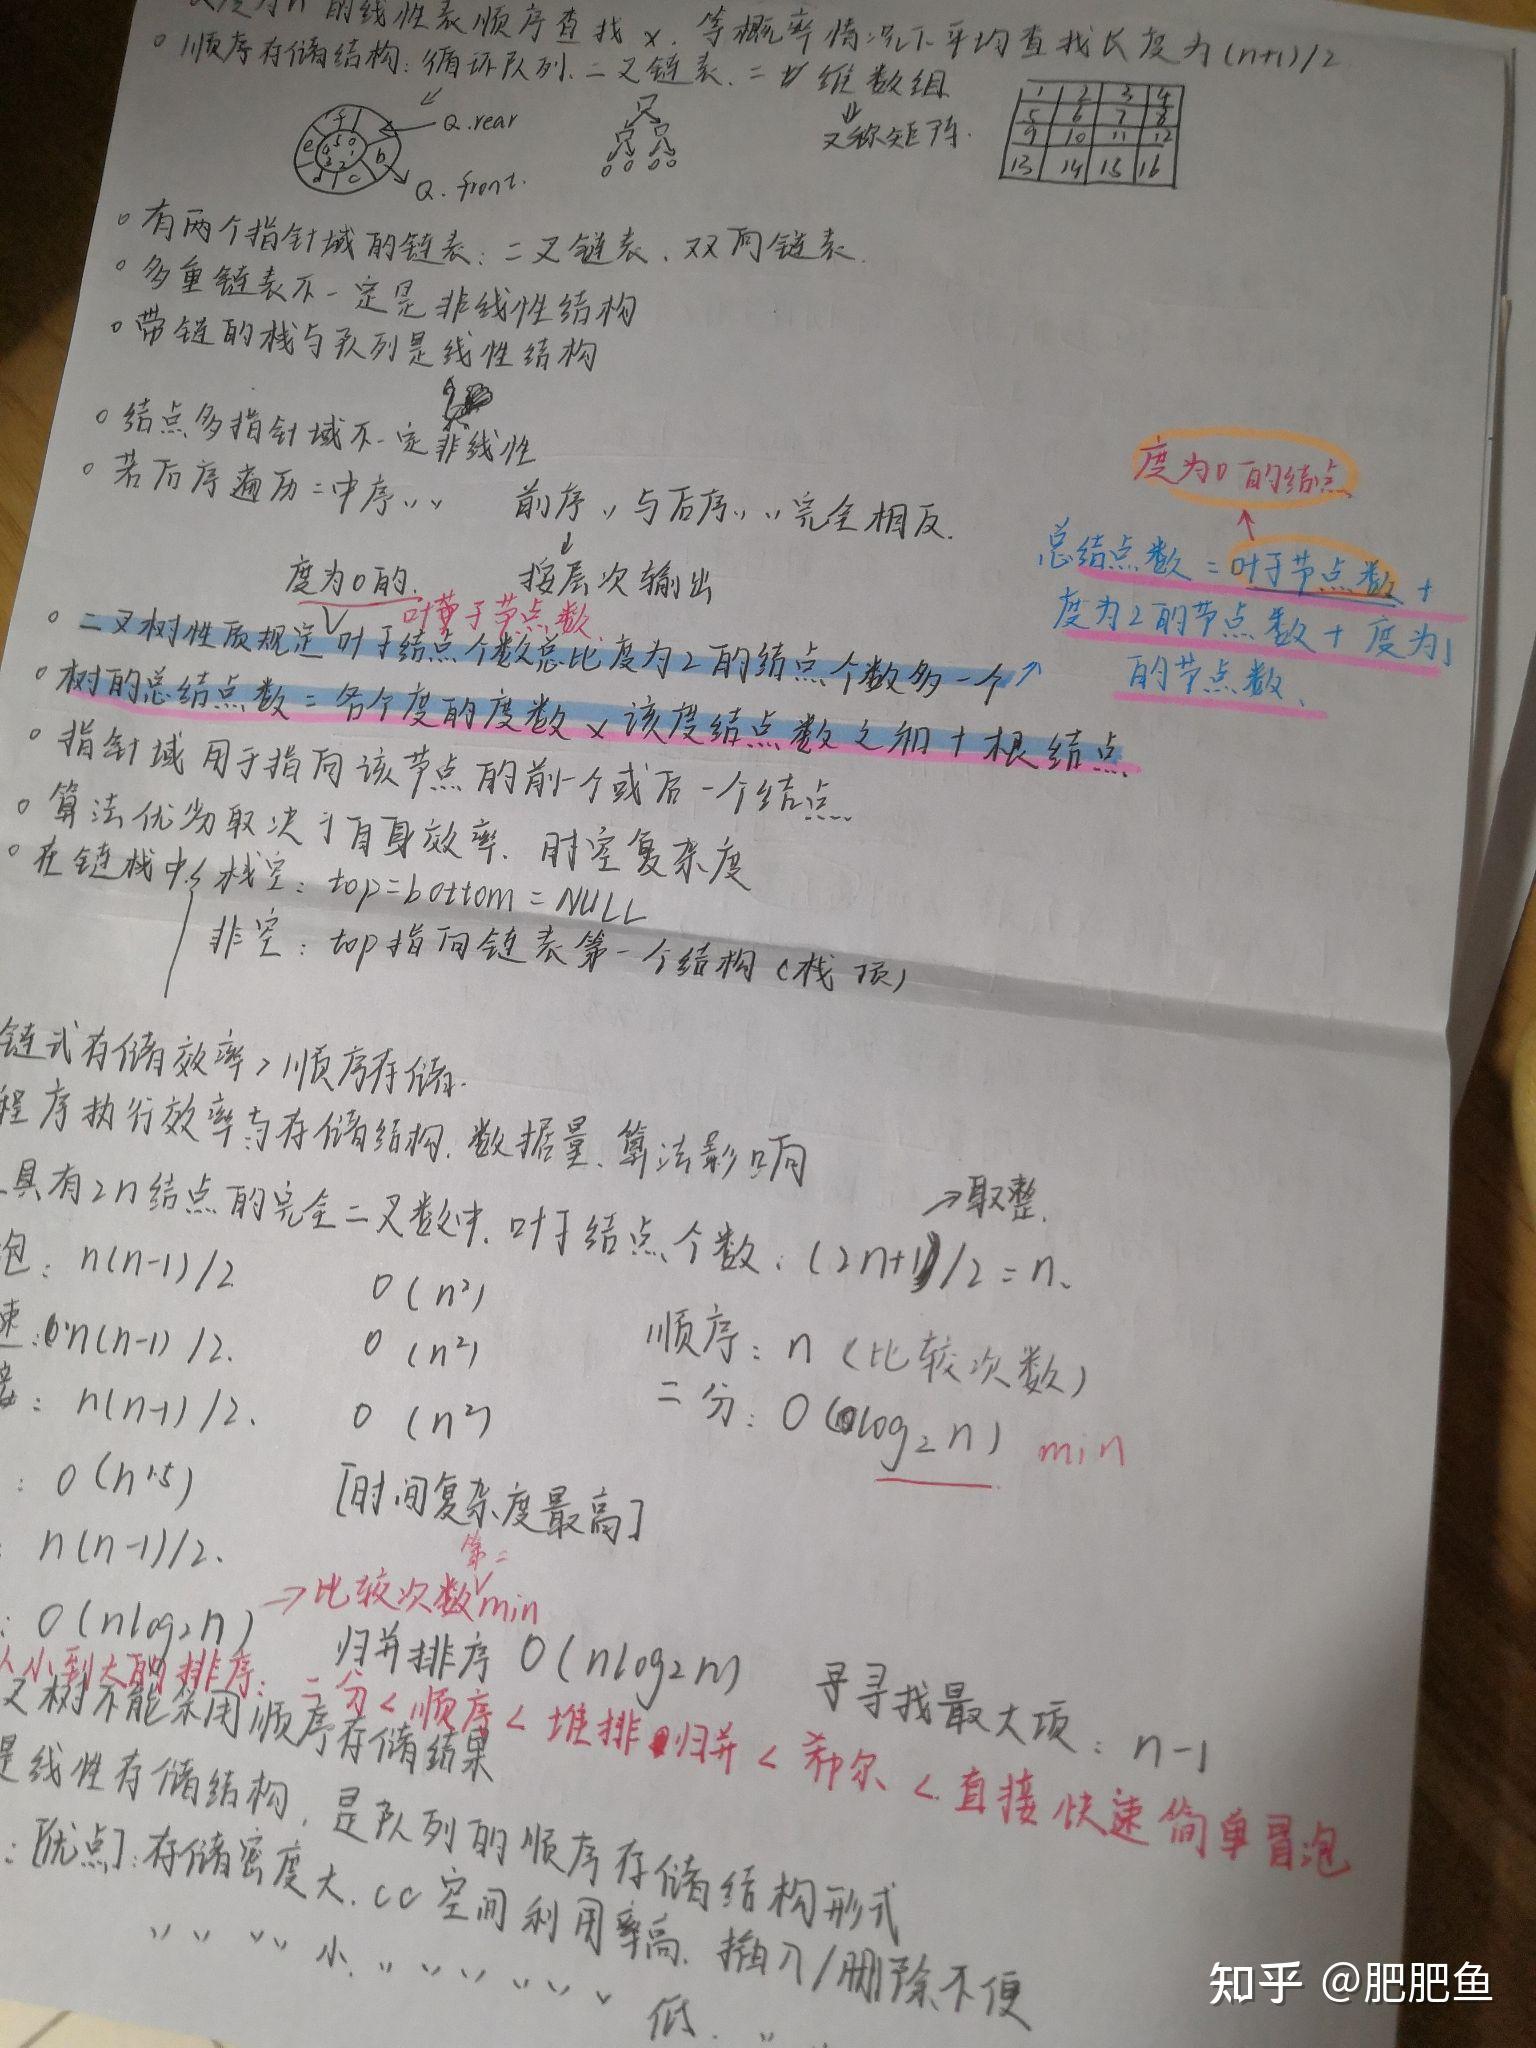 长度为n的线性表顺序查找x.等概率情况下平均查找长度为(n+1)/2
顺序存储结构:循环队列.二叉链表.二维数组
Q.rear
Q.front.
又称矩阵.
1 2 3 4
5 6 7 8
9 10 11 12
13 14 15 16
f
e
b
d
c
有两个指针域的链表:二叉链表.双向链表.
多重链表不一定是非线性结构
带链的栈与队列是线性结构
结点多指针域不一定非线性
若后序遍历=中序〃 前序〃与后序〃完全相反.
度为0的. 按层次输出
叶子节点数
度为0的结点
总结点数=叶子节点数+
度为2的节点数+度为1
的节点数.
二叉树性质规定叶子结点个数总比度为2的结点个数多一个
树的总结点数=各个度的度数×该度结点数之和+根结点.
指针域用于指向该节点的前一个或后一个结点.
算法优劣取决于自身效率.时空复杂度
在链栈中 栈空:top=bottom=NULL
非空:top指向链表第一个结构(栈顶)
链式存储效率>顺序存储.
程序执行效率与存储结构.数据量.算法影响
具有2n结点的完全二叉数中.叶子结点个数:(2n+1)/2=n.
→取整.
泡:n(n-1)/2 O(n²)
速:n(n-1)/2. O(n²)
:n(n-1)/2. O(n²)
顺序:n(比较次数)
二分:O(log₂n) min
:O(n1.5) [时间复杂度最高]
:n(n-1)/2.
:O(nlog₂n) →比较次数第二min
归并排序O(nlog₂n)
寻寻找最大项:n-1
小到大的排序:二分<顺序<堆排 归并<希尔<直接快速简单冒泡
叉树不能采用顺序存储结果
是线性存储结构,是队列的顺序存储结构形式
:[优点]:存储密度大.cc空间利用率高.插入/删除不便
〃〃小.〃〃〃低.〃
知乎 @肥肥鱼